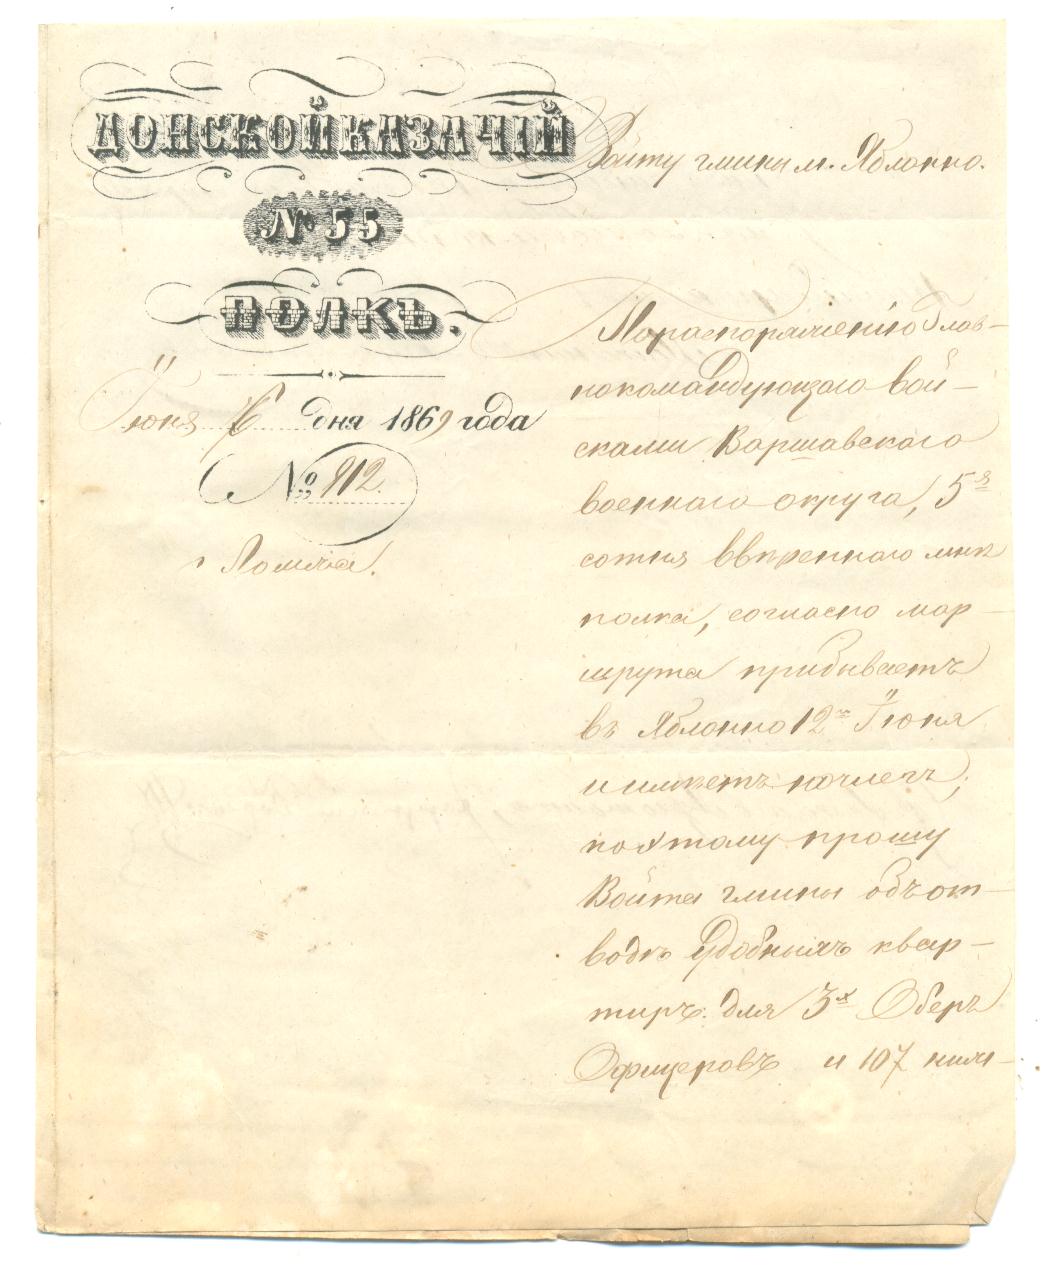 ДОНСКОЙ КАЗАЧІЙ
№ 55
ПОЛКЪ.
Іюня 6 дня 1869 года
№ 812.
г Ломжа.
Войту гмины м. Яблонно.
По распоряженію Глав-
нокомандующаго вой-
сками Варшавскаго
военнаго округа, 5я
сотня ввѣреннаго мнѣ
полка, согласно мар-
шрута прибываетъ
въ Яблонно 12го Іюня
и имѣетъ ночлегъ;
поэтому прошу
Войта гмины объ от-
водѣ удобныхъ квар-
тиръ для 3х Оберъ
Офицеровъ и 107 ниж-